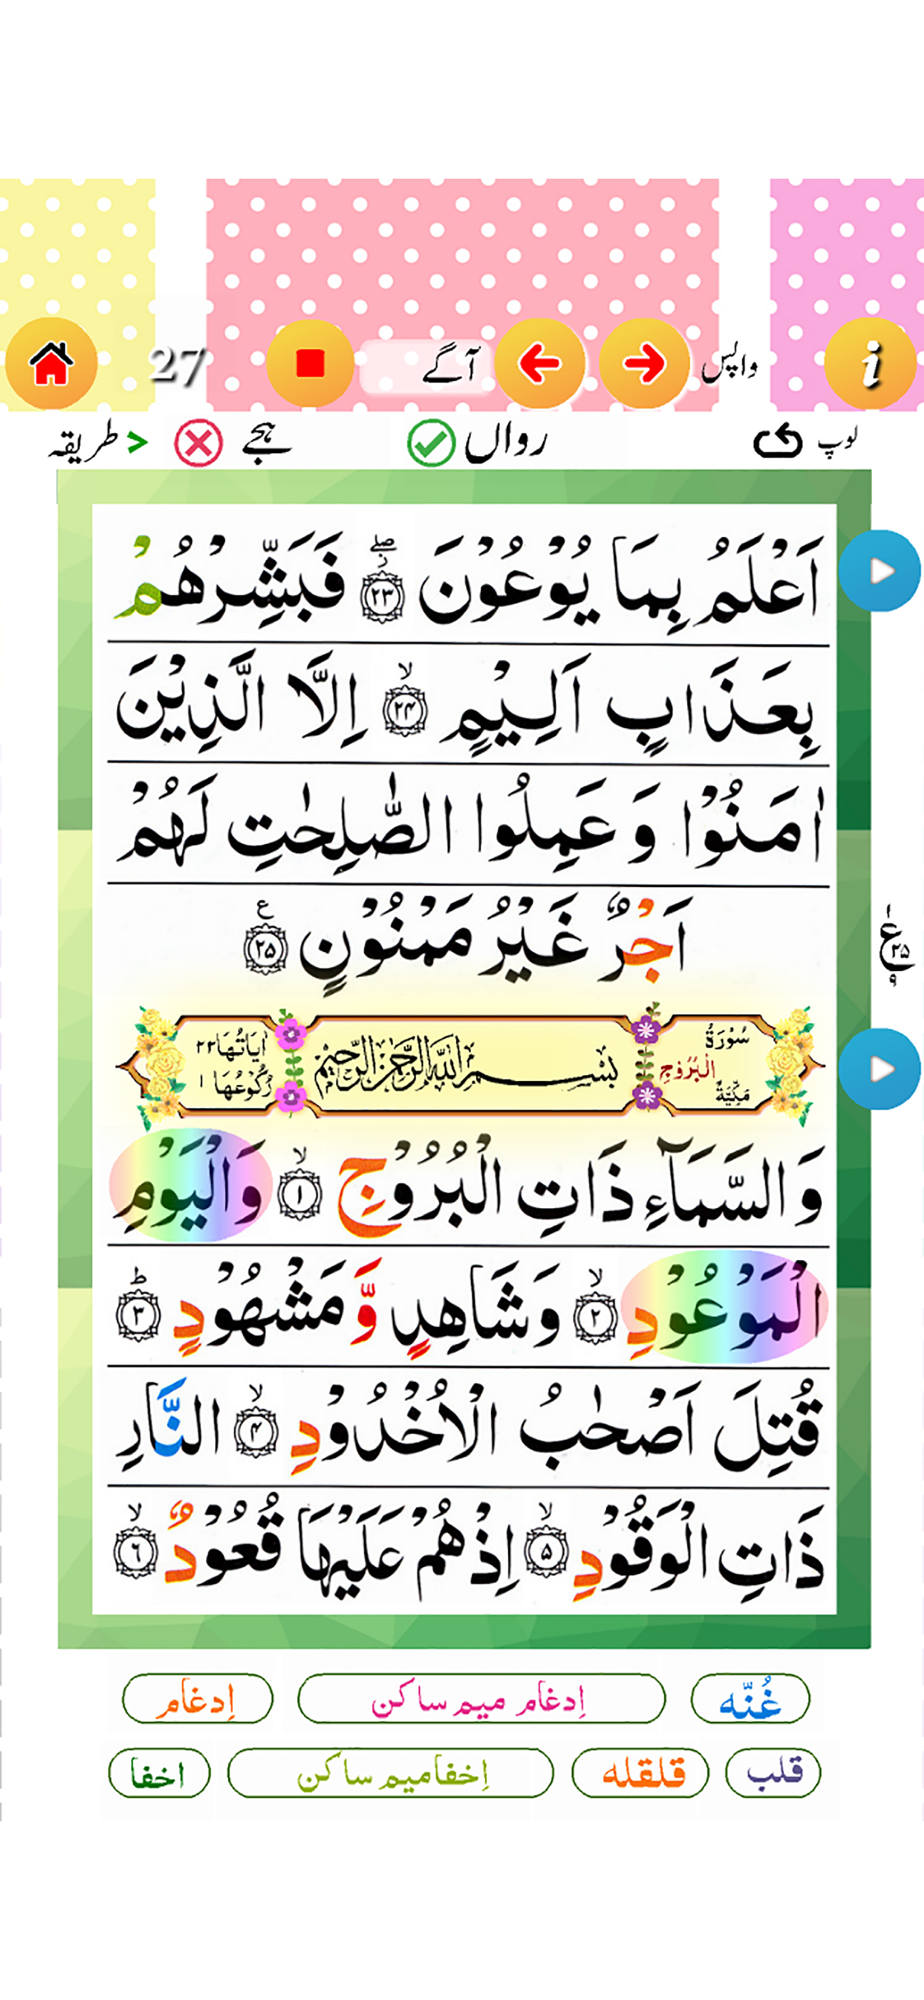 27 آگے واپس i
طریقہ > ہجے رواں لوپ
اَعْلَمُ بِمَا يُوْعُوْنَ ۲۳ فَبَشِّرْهُمْ
بِعَذَابٍ اَلِيْمٍ ۲۴ اِلَّا الَّذِيْنَ
اٰمَنُوْا وَ عَمِلُوا الصّٰلِحٰتِ لَهُمْ
اَجْرٌ غَيْرُ مَمْنُوْنٍ ۲۵
سُوْرَةُ الْبُرُوْجِ مَكِّيَّةٌ
بِسْمِ اللّٰهِ الرَّحْمٰنِ الرَّحِيْمِ
اٰيَاتُهَا ۲۲ رُكُوْعُهَا ۱
وَ السَّمَآءِ ذَاتِ الْبُرُوْجِ ۱ وَالْيَوْمِ
الْمَوْعُوْدِ ۲ وَ شَاهِدٍ وَّ مَشْهُوْدٍ ۳
قُتِلَ اَصْحٰبُ الْاُخْدُوْدِ ۴ النَّارِ
ذَاتِ الْوَقُوْدِ ۵ اِذْ هُمْ عَلَيْهَا قُعُوْدٌ ۶
غُنّہ اِدغام میم ساکن اِدغام
قلب قلقلہ اِخفا میم ساکن اخفا